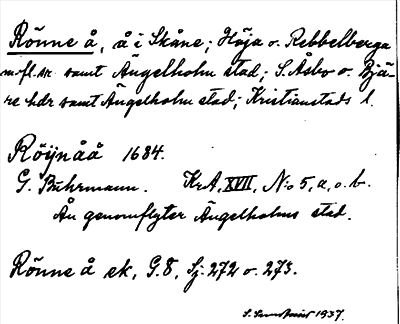 Rönne å, å i Skåne; Höja o. Rebbelberga
m.fl. sn. samt Ängelholm stad; S. Åsbo o. Bjä-
re hdr samt Ängelholm stad; Kristianstads l.
Röÿnåå 1684.
G. Buhrmann. KrA, XVII, N:o 5, a, o. b.
Ån genomflyter Ängelholms stad.
Rönne å ek, G. 8, Sj: 272 o. 273.
1937.